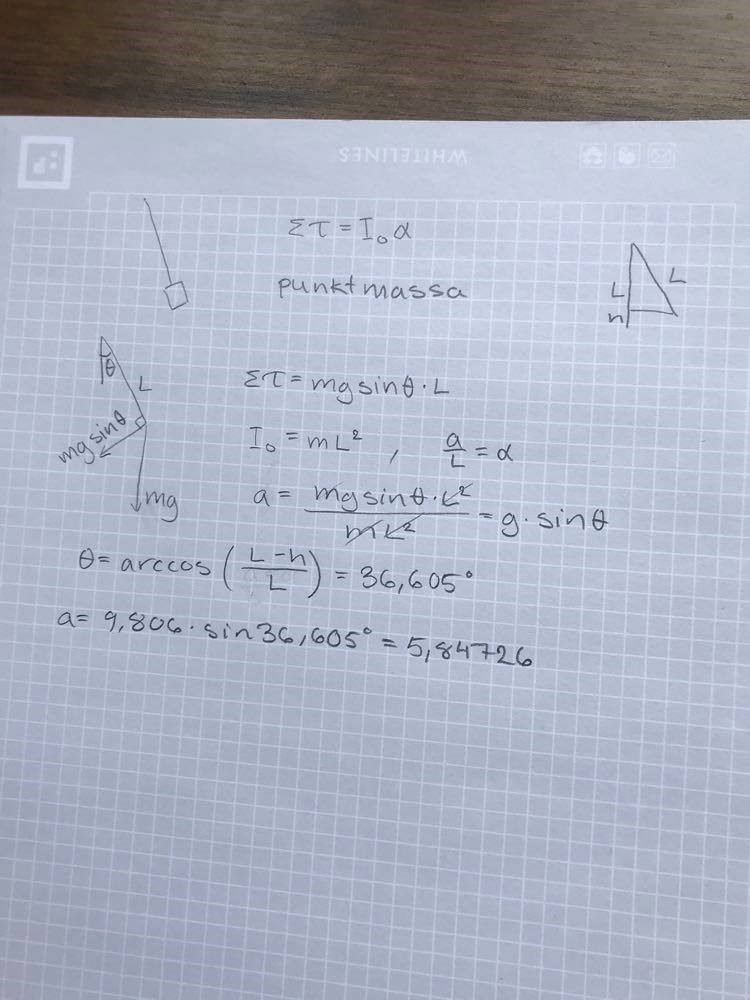 WHITELINES
Στ = I₀α
punktmassa
L
L
h
θ
L
mg sinθ
mg
Στ = mg sinθ · L
I₀ = mL² , a/L = α
a = mg sinθ · L²/mL² = g · sinθ
θ = arccos (L-h/L) = 36,605°
a = 9,806 · sin 36,605° = 5,84726